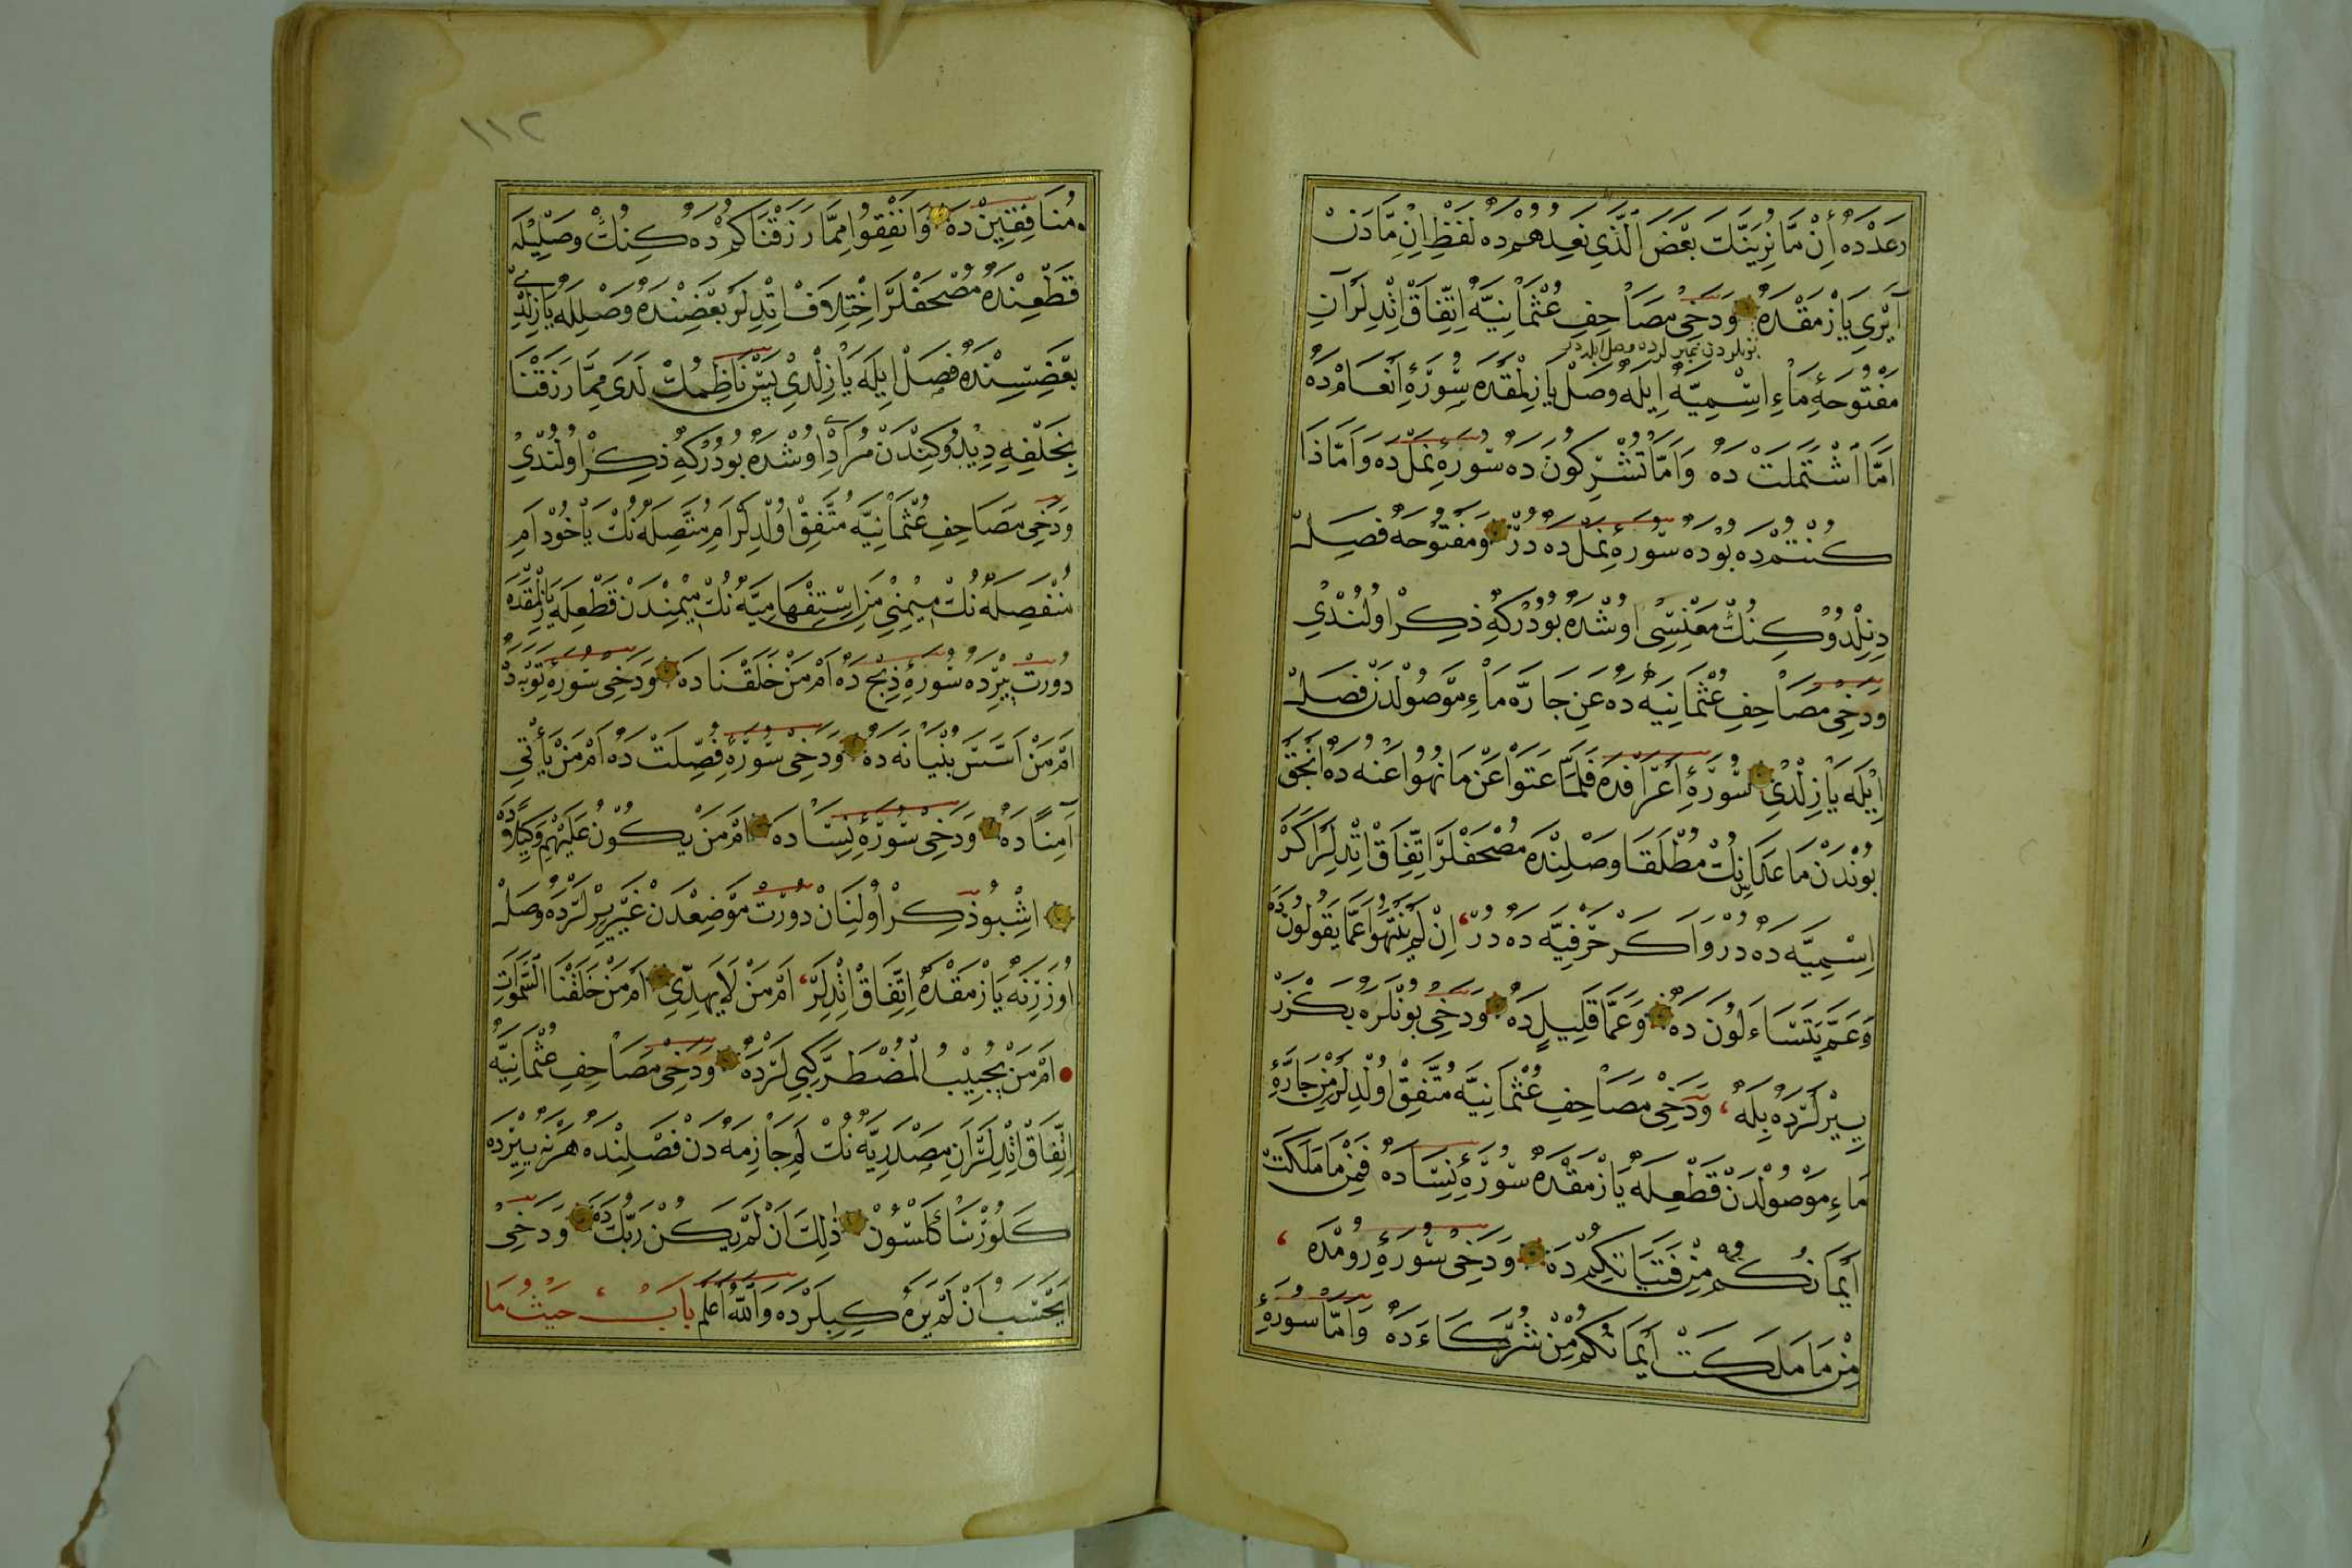 رَعَدْدَه اِنْ مَّا نُرِيَنَّكَ بَعْضَ الَّذِي نَعِدُهُمْ دَه لَفْظِ اِنِ مَّا دَنْ
اَيْرِي يَازْمَقْدَه وَدَخِى مَصَاحِفِ عُثْمَانِيَّه اِتِّفَاقْ اِتْدِلَرْ اَنِ
بونلردن غير لرده وصل ايلديلر
مَفْتُوحَهٔ مَاءِ اِسْمِيَّه اِيلَه وَصْل يَازِلْمَقْدَه سُورَهٔ اَنْعَامْ دَه
اَمَّا اشْتَمَلَتْ دَه وَاَمَّا تُشْرِكُونَ دَه سُورَهٔ نَمْلْ دَه وَاَمَّاذَا
كُنْتُمْ دَه بُودَه سُورَهٔ نَمْلْ دَه دُرْ وَمَفْتُوحَه فَصِيلَه
دِنِلْدُوكِنُكْ مَعْنِسِى اُوشْدَه بُودُرْكِه ذِكِرْ اُولُنْدِى
وَدَخِى مَصَاحِفِ عُثْمَانِيَه دَه عَنِ جَارَّه مَاءِ مَوْصُولْدَنْ فَصِلْ
اِيْلَه يَازِلْدِى سُورَهٔ اَعْرَافْدَه فَلَمَّا عَتَوْا عَنْ مَا نُهُوا عَنْهُ دَه اَنْجَقْ
بُونْدَنْ مَاعَدَانِكْ مُطْلَقَا وَصْلِنْدَه مُصْحَفْلَرْ اِتِّفَاقْ اِتْدِلَرْ اَكَرْ
اِسْمِيَّه دَه دُرْ وَاكَرْ حَرْفِيَّه دَه دُرْ اِنْ لَمْ يَنْتَهُوا عَمَّا يَقُولُونَ دَه
وَعَمَّ يَتَسَاءَلُونَ دَه وَعَمَّا قَلِيلٍ دَه وَدَخِى بُونْلَرَه بَكْزَرْ
يِيرْلَرْدَه بِلَه وَدَخِى مَصَاحِفِ عُثْمَانِيَّه مُتَّفِقْ اُولْدِلَرْ مِنْ جَارَّهٔ
مَاءِ مَوْصُولْدَنْ قَطْعِلَه يَازْمَقْدَه سُورَهٔ نِسَادَه فَمِنْ مَا مَلَكَتْ
اَيْمَانُكُمْ مِنْ فَتَيَاتِكُمْ دَه وَدَخِى سُورَهٔ رُومْدَه
مِنْ مَا مَلَكَتْ اَيْمَانُكُمْ مِنْ شُرَكَاءَ دَه وَاَمَّا سُورَهٔ
١١٢
مُنَافِقِينْ دَه وَاَنْفِقُوا مِمَّا رَزَقْنَاكُمْ دَه كِنُكْ وَصْلِيلَه
قَطْعِنْدَه مُصْحَفْلَرْ اِخْتِلَافْ اِتْدِلَرْ بَعْضِنْدَه وَصْلِلَه يَازِلْدِى
بَعْضِسِنْدَه فَصِلْ اِيلَه يَازِلْدِى پَسْ نَاظِمُكْ لَدَى مِمَّا رَزَقْنَا
بِخَلْفِهِ دِيدُوكِنْدَنْ مُرَادِى اُوشْدَه بُودُرْكِه ذِكِرْ اُولُنْدِى
وَدَخِى مَصَاحِفِ عُثْمَانِيَّه مُتَّفِقْ اُولْدِلَرْ اَمِ مُتَّصِلَه نُكْ يَاخُودْ اَمِ
مُنْفَصِلَه نُكْ مِيمِنِى مَنِ اِسْتِفْهَامِيَّه نُكْ مِيمِنْدَنْ قَطْعِلَه يَازْلْمَقْدَه
دُورْتْ يِيرْدَه سُورَهٔ ذِبْحْ دَه اَمْ مَنْ خَلَقْنَا دَه وَدَخِى سُورَهٔ تَوْبَه دَه
اَمْ مَنْ اَسَّسَ بُنْيَانَه دَه وَدَخِى سُورَهٔ فُصِّلَتْ دَه اَمْ مَنْ يَأْتِى
آمِنًا دَه وَدَخِى سُورَهٔ نِسَادَه اَمْ مَنْ يَكُونُ عَلَيْهِمْ وَكِيلًا دَه
اِشْبُو ذِكِرْ اُولُنَانْ دُورْتْ مَوْضِعْدَنْ غَيْرِ يِرْلَرْدَه وَصِلْ
اُوزَرِنَه يَازْمَقْدَه اِتِّفَاقْ اِتْدِلَرْ اَمْ مَنْ لَا يَهِدِّى اَمْ مَنْ خَلَقْنَا السَّمٰوَاتِ
اَمْ مَنْ يُجِيبُ الْمُضْطَرَّ كِبِى لَرْدَه وَدَخِى مَصَاحِفِ عُثْمَانِيَّه
اِتِّفَاقْ اِتْدِلَرْ اَنِ مَصْدَرِيَّه نُكْ لَمْ جَازِمَه دَنْ فَصْلِنْدَه هَرْنَه يِيرْدَه
كَلُورْسَا كَلْسُونْ ذٰلِكَ اَنْ لَمْ يَكُنْ رَبُّكَ دَه وَدَخِى
يَحْسَبُ اَنْ لَمْ يَرَهُ كِبِيلَرْدَه وَاللّٰهُ اَعْلَمْ بَابُ حَيْثُ مَا